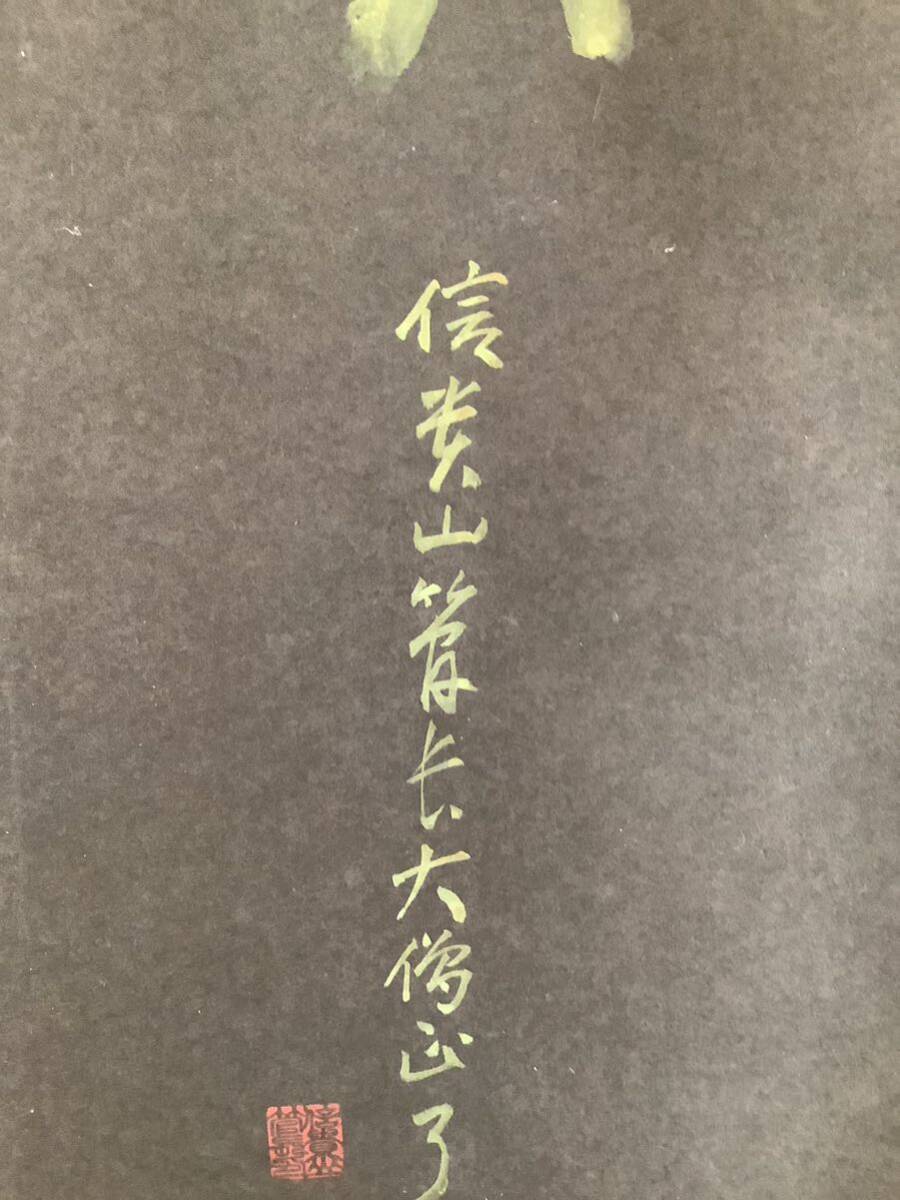 信貴山管長大僧正了